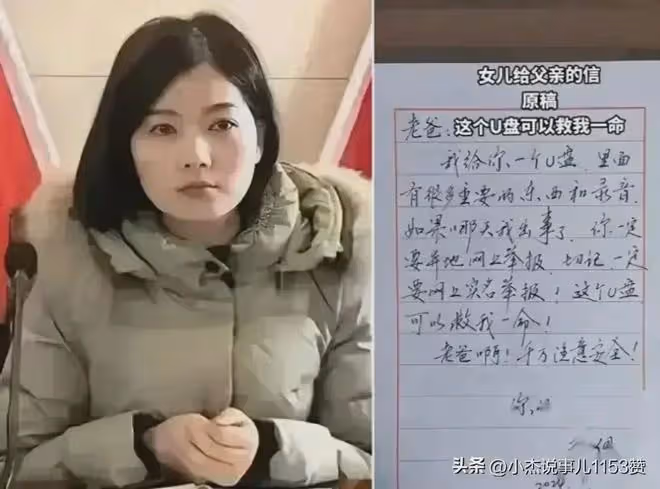 女儿给父亲的信
原稿
这个U盘可以救我一命
老爸:
我给你一个U盘,里面
有很多重要的东西和录音,
如果哪天我出事了,你一定
要异地网上举报,切记,一定
要网上实名举报!这个U盘
可以救我一命!
老爸啊!千万注意安全!
你
2024
头条 @小杰说事儿1153赞